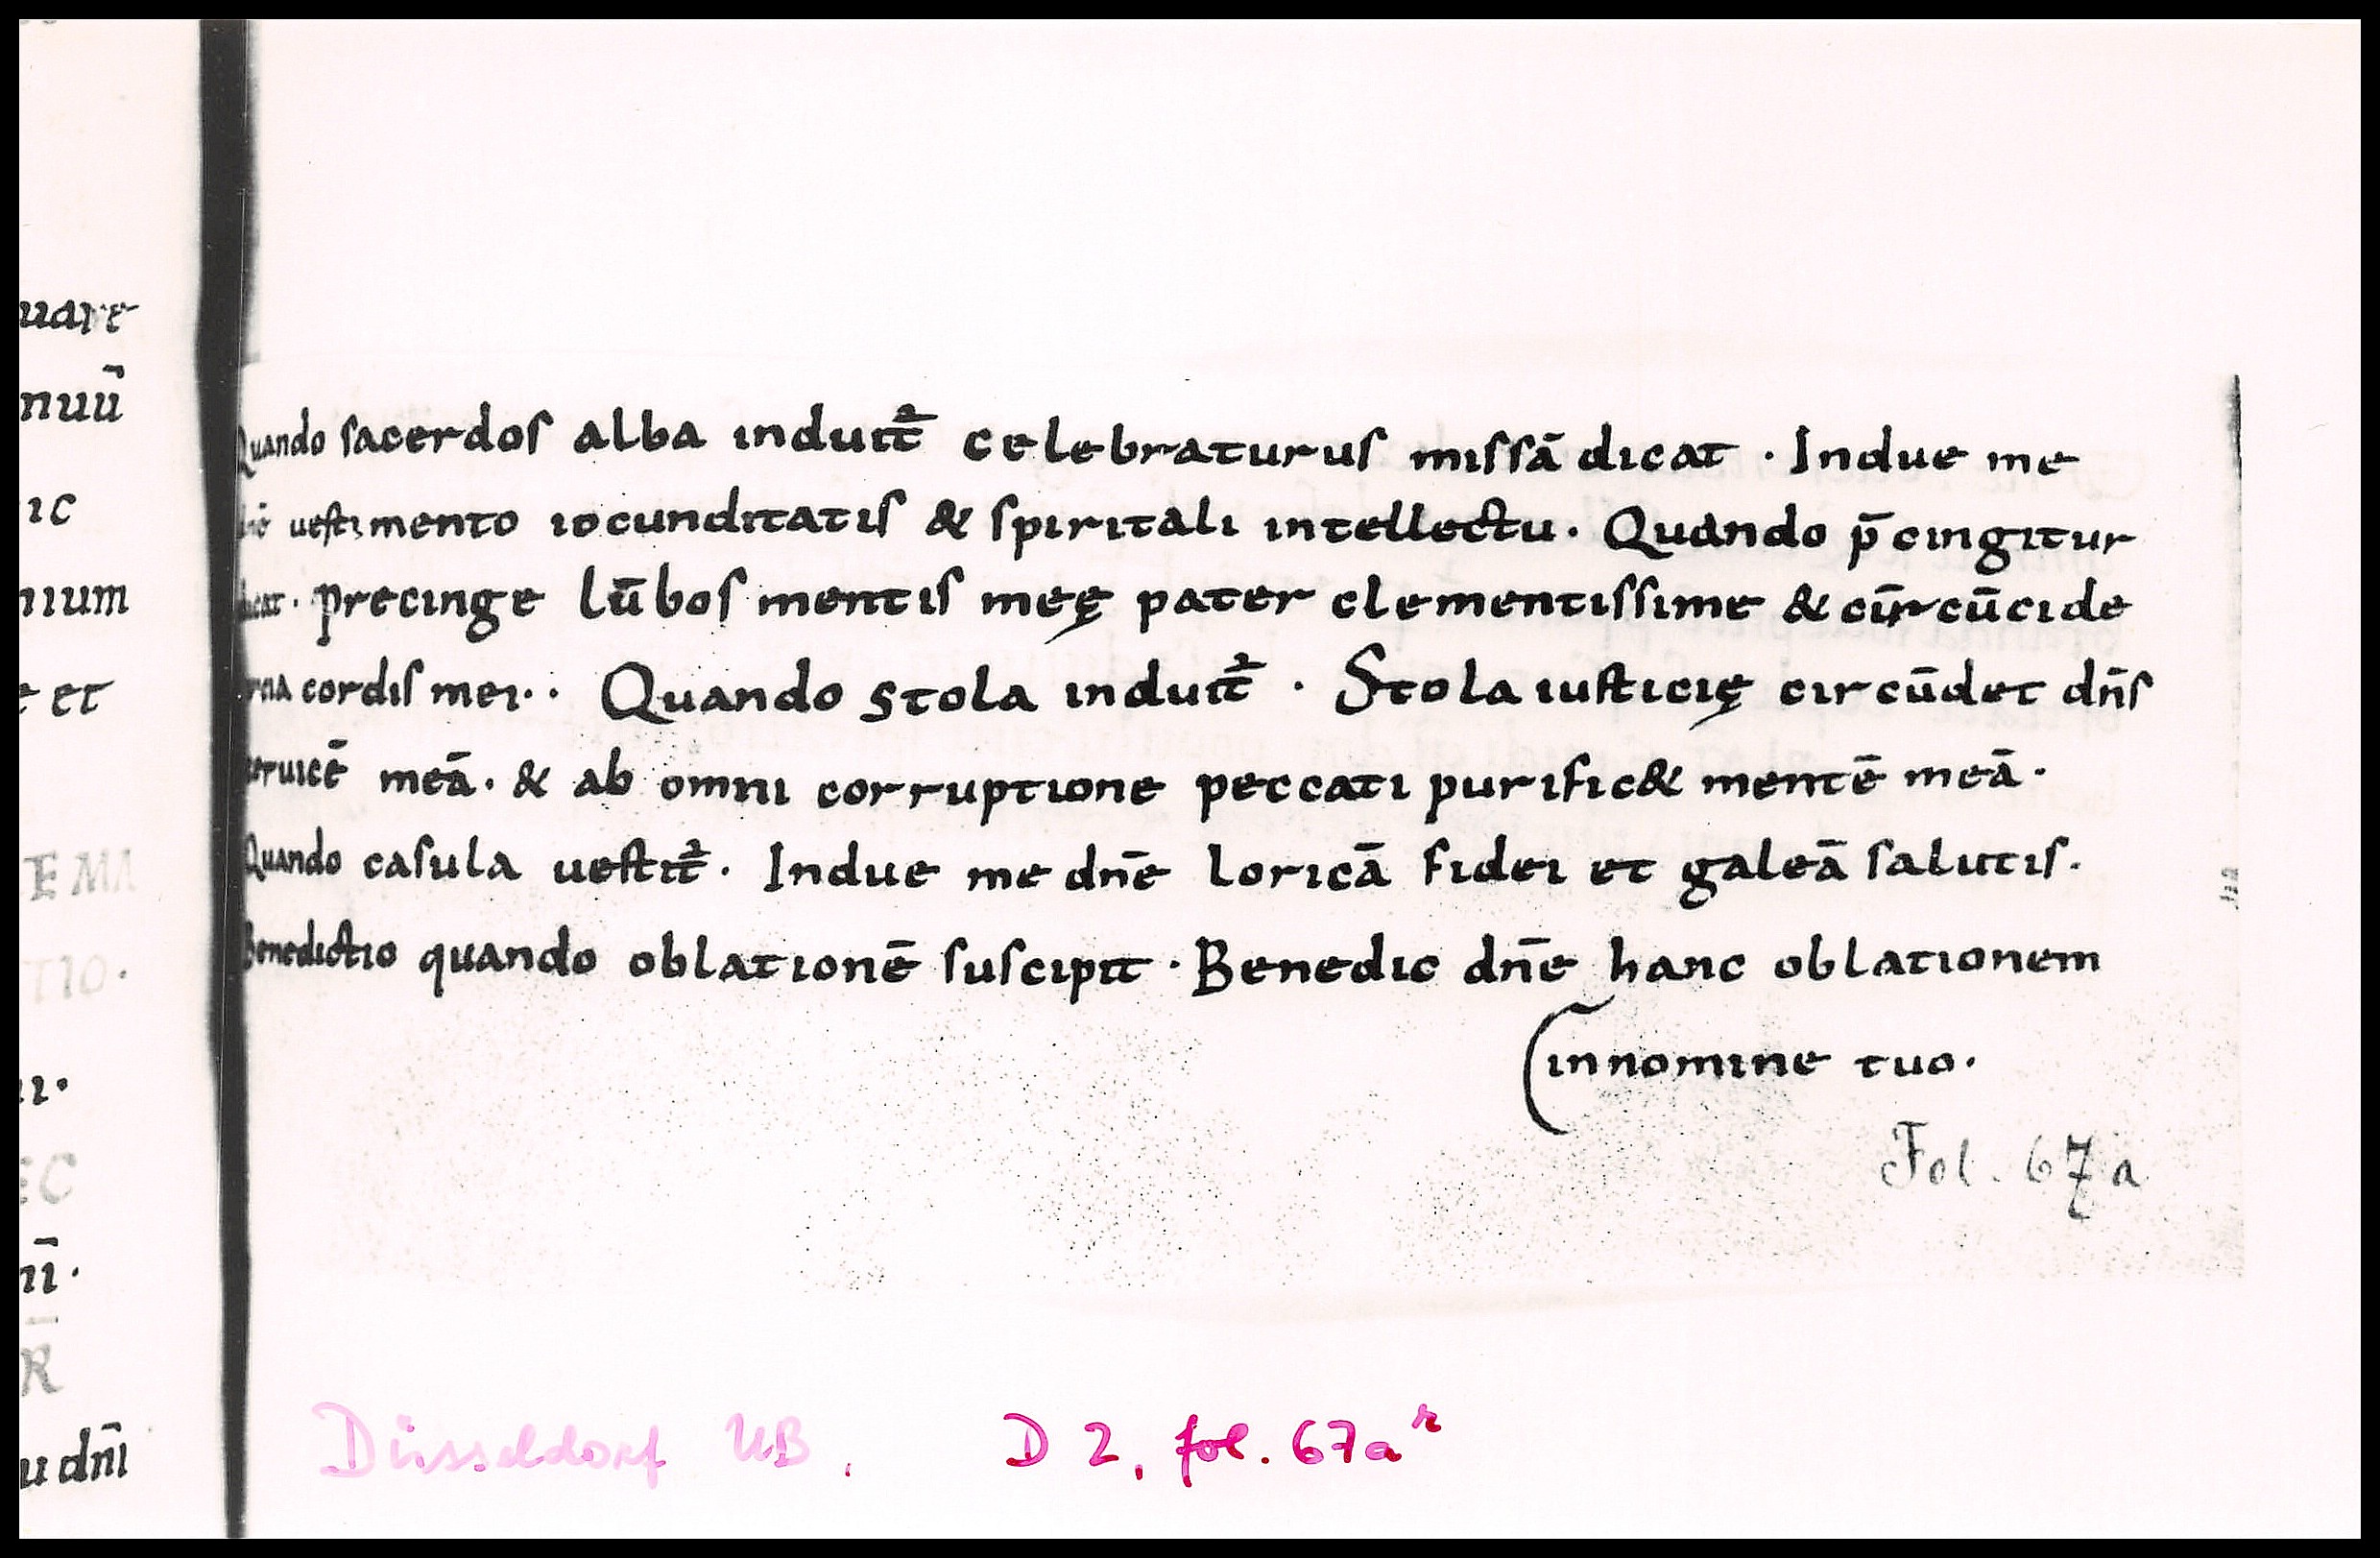 uare
nuū
ic
nium
e et
EMA
TIO.
ii.
EC
nī.
R
u dn̄i
Quando sacerdos alba induit᷑ celebraturus missā dicat · Indue me
dn̄e uestimento iocunditatis & spiritali intellectu. Quando p̄cingitur
dicat. precinge lūbos mentis meę pater clementissime & circūcide
cordis mei.. Quando stola induit᷑ · Stola iusticię circūdet dn̄s
ceruicē meā. & ab omni corruptione peccati purific& mentē meā.
Quando casula uestit᷑. Indue me dn̄e loricā fidei et galeā salutis.
Benedictio quando oblationē suscipit · Benedic dn̄e hanc oblationem
in nomine tuo.
Fol. 67a
Düsseldorf UB, D 2, fol. 67a r